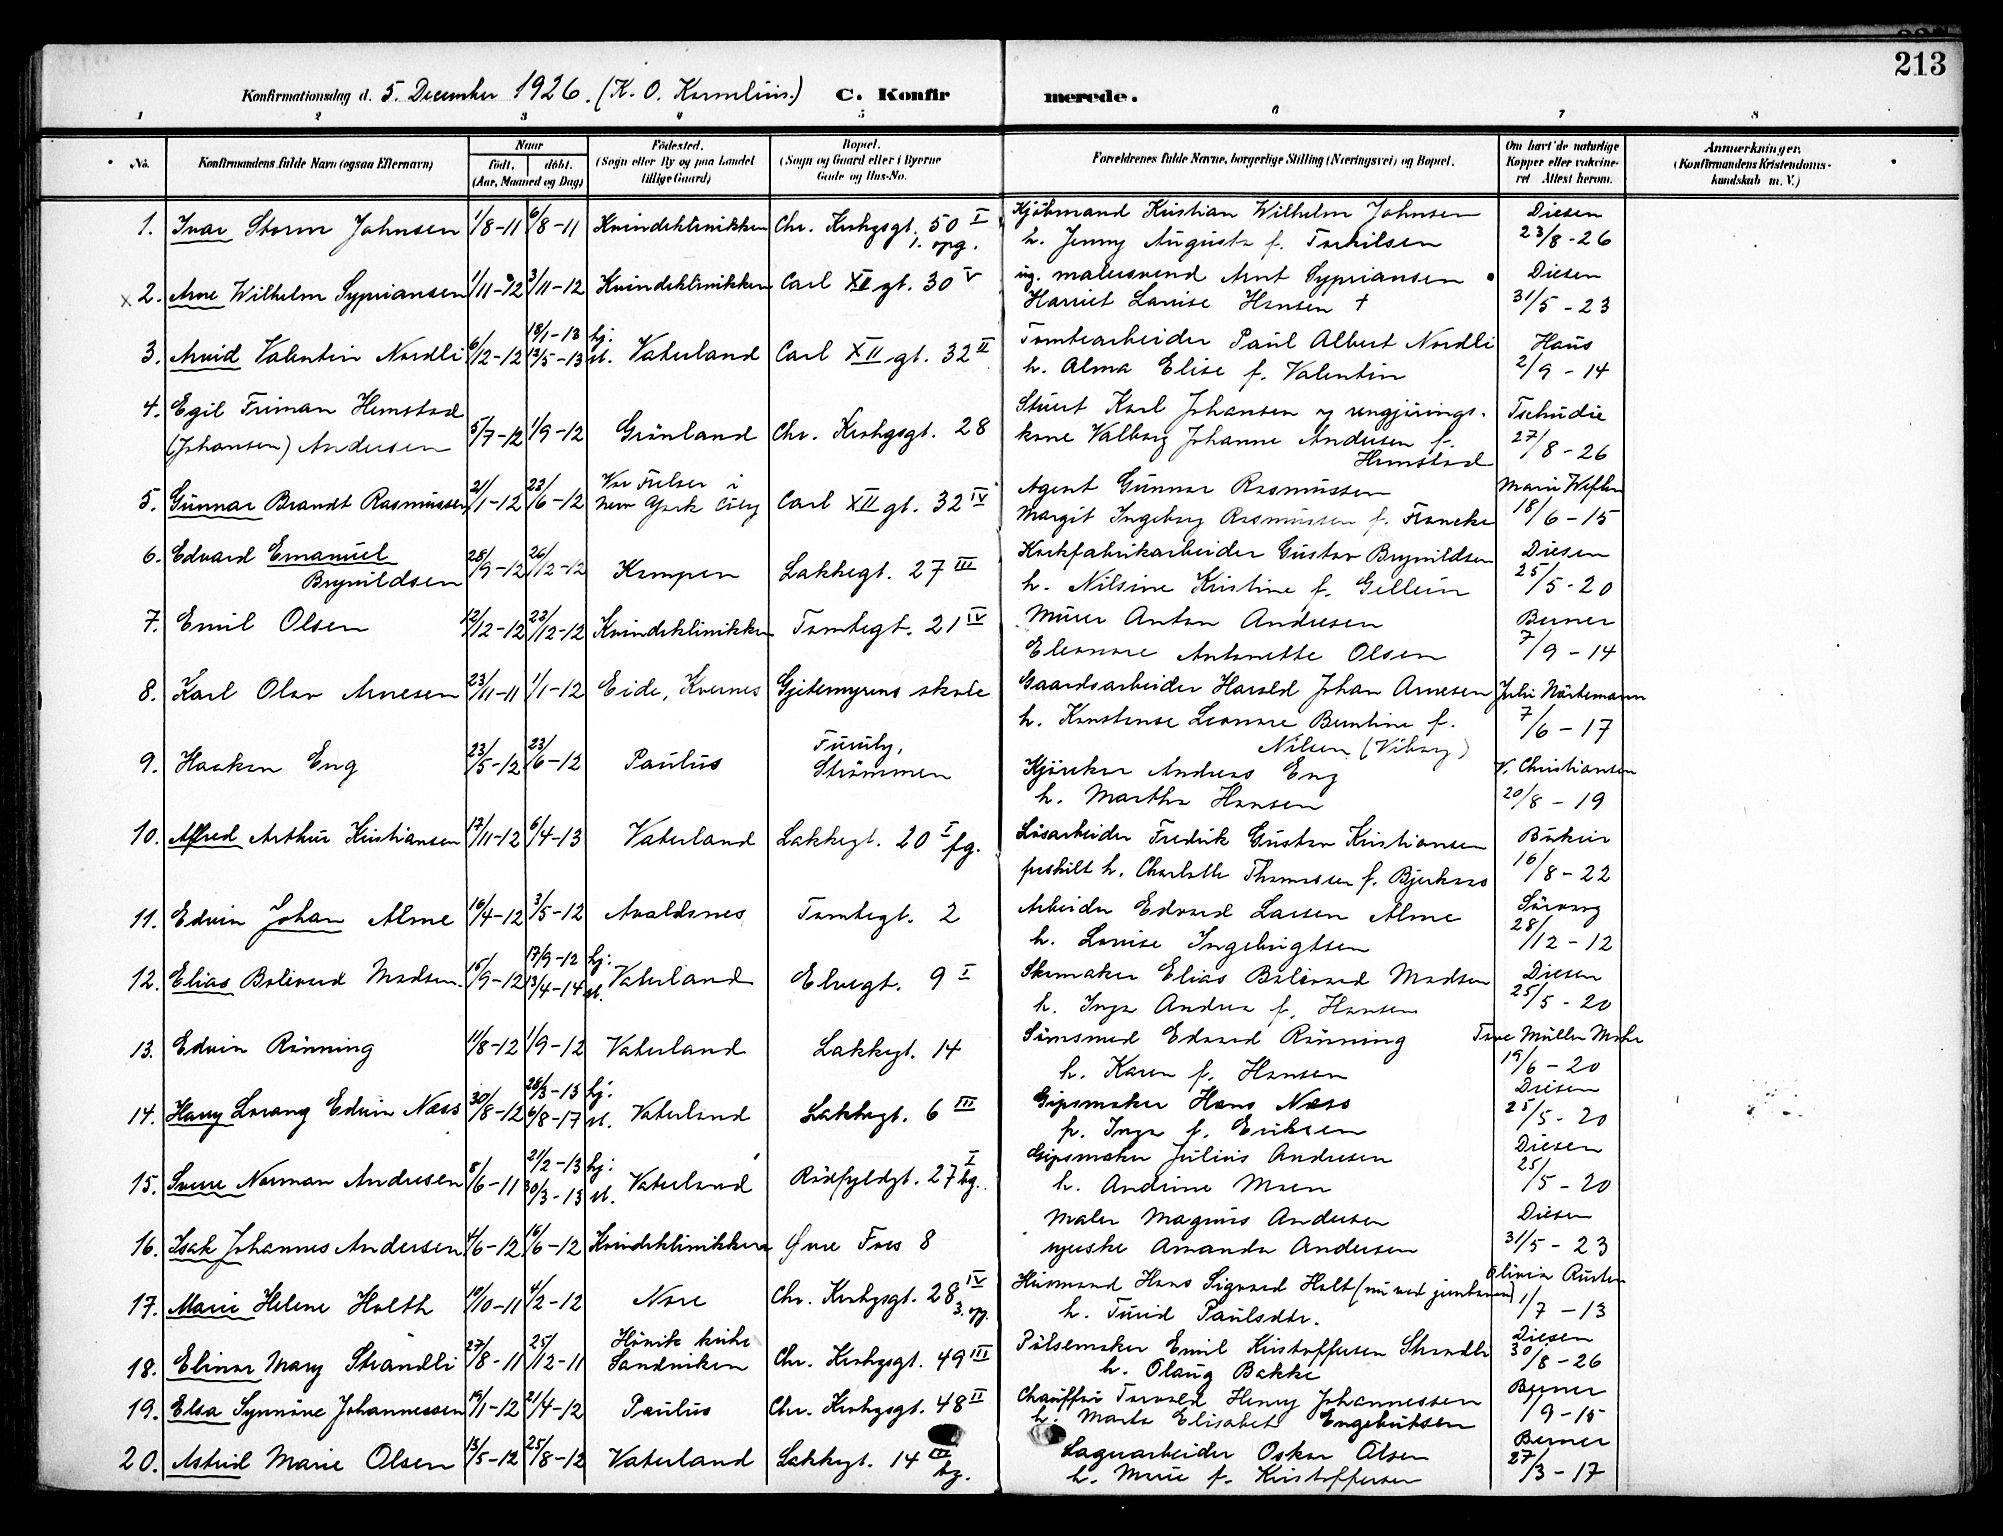 213
Konfirmationsdag d. 5. December 1926. (K. O. Kornelius.) C. Konfirmerede.
1 2 3 4 5 6 7 8
No.
Konfirmandens fulde Navn (ogsaa Efternavn)
Naar
født, døbt.
(Aar, Maaned og Dag)
Fødested.
(Sogn eller By og paa Landet
tillige Gaard)
Bopæl.
(Sogn og Gaard eller i Byerne
Gade og Hus-No.
Forældrenes fulde Navne, borgerlige Stilling (Næringsvei) og Bopæl.
Om havt de naturlige
Kopper eller vakcine-
ret Attest herom.
Anmærkninger.
(Konfirmandens Kristendoms-
kundskab m. V.)
1. Ivar Storm Johnsen 1/8-11 6/8-11 Kvindeklinikken Chr. Krohgsgt. 50 I
1. opg.
Kjøbmand Kristian Wilhelm Johnsen
h. Jenny Augusta f. Torkilsen
Diesen
23/8-26
x 2. Arne Wilhelm Sypriansen 1/11-12 3/11-12 Kvindeklinikken Carl XII gt. 30 V
ug. malersvend Arnt Sypriansen
Harriet Louise Hansen †
Diesen
31/5-23
3. Arvid Valentin Nordli 6/12-12 18/1-13 hj:
13/5-13 st. Vaterland Carl XII gt. 32 II
Tomtearbeider Paul Albert Nordli
h. Alma Elise f. Valentin
Haus
2/9-14
4. Egil Friman Hemstad
(Johansen) Andersen 5/7-12 1/9-12 Grønland Chr. Krohgsgt. 28
Stuert Karl Johansen og rengjørings-
kone Valborg Johanne Andersen f.
Hemstad
Tschudie
27/8-26
5. Gunnar Brandt Rasmussen 21/1-12 23/6-12 Vor Frelser i
New York City Carl XII gt. 32 IV
Agent Gunnar Rasmussen
Margit Ingeborg Rasmussen f. Francke
Marie
18/6-15
6. Edvard Emanuel
Brynildsen 28/9-12 26/12-12 Kampen Lakkegt. 27 III
Korkfabrikarbeider Gustav Brynildsen
h. Nilsine Kristine f. Gellein
Diesen
25/5-20
7. Emil Olsen 12/12-12 23/12-12 Kvindeklinikken Tomtegt. 21 IV
Murer Anton Andresen
Eleonore Antonette Olsen
Berner
7/9-14
8. Karl Olav Arnesen 23/11-11 1/1-12 Eide, Kvernes Gjetemyrens skole
Gaardsarbeider Harald Johan Arnesen
h. Konstanse Leonore Berntine f.
Nilsen (Viborg)
7/6-17
9. Haakon Eng 23/5-12 23/6-12 Paulus Furuly,
Strømmen
Kjørekar Andreas Eng
h. Martha Hansen
V. Christiansen
20/8-19
10. Alfred Arthur Kristiansen 17/11-12 6/4-13 Vaterland Lakkegt. 20 I fg.
Løsarbeider Fredrik Gustav Kristiansen
fraskilt h. Charlotte Thomassen f. Bjerkaas
16/8-22
11. Edvin Johan Alme 16/4-12 3/5-12 Avaldsnes Tomtegt. 2
Arbeider Edvard Larsen Alme
h. Louise Ingebrigtsen
28/12-12
12. Elias Bolivard Madsen. 15/9-12 17/9-12 hj:
13/4-14 st. Vaterland Elvegt. 9 I
Skomaker Elias Bolivard Madsen
h. Inga Andrea f. Hansen
Diesen
25/5-20
13. Edvin Rønning 11/8-12 1/9-12 Vaterland Lakkegt. 14
Sømsmed Edvard Rønning
h. Karen f. Hansen
Tove Müller
19/6-20
14. Harry Lorang Edvin Næss 30/8-12 28/3-13 hj:
6/8-17 st. Vaterland Lakkegt. 6 III
Gipsmaker Hans Næss
h. Inga f. Eriksen
Diesen
25/5-20
15. Sverre Norman Andresen 8/6-11 21/2-13 hj:
30/3-13 st. Vaterland Rødfyldgt. 27 I bg.
Gipsmaker Julius Andresen
h. Andrine Moen
Diesen
25/5-20
16. Isak Johannes Andersen 4/6-12 16/6-12 Kvindeklinikken Øvre Foss 8
Maler Magnus Andersen
syerske Amanda Andersen
Diesen
31/5-23
17. Marie Helene Holth 10/10-11 4/2-12 Nore Chr. Krohgsgt. 28 IV
3. op.
Husmand Hans Sigvard Holt (nu ved jernbanen)
h. Turid Paulsdtr.
Olivia Rusten
1/7-13
18. Elinor Mary Strandli 27/8-11 25/12-11 Høvik kirke
Sandviken Chr. Krohgsgt. 49 III
Pølsemaker Emil Kristoffersen Strandli
h. Olaug Bakke
Diesen
30/8-26
19. Elsa Synnøve Johannessen 19/1-12 21/4-12 Paulus Chr. Krohgsgt. 48 II
Chauffør Torvald Henry Johannessen
h. Marta Elisabet Engebretsen
Berner
1/9-15
20. Astrid Marie Olsen 13/5-12 25/8-12 Vaterland Lakkegt. 14 III
bg.
Lagerarbeider Oskar Olsen
h. Marie f. Kristoffersen
Berner
27/3-17